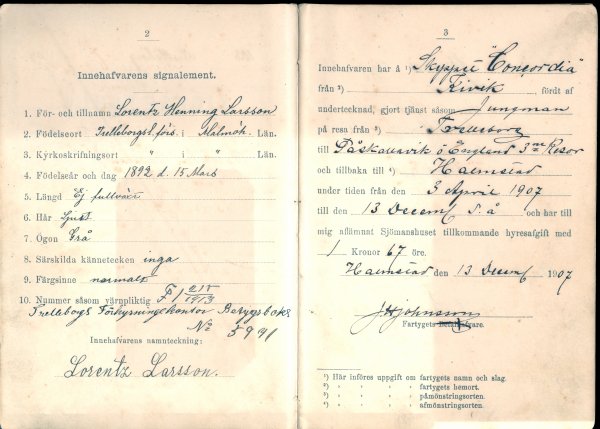 2
Innehafvarens signalement.
1. För- och tillnamn Lorentz Henning Larsson
2. Födelseort Trelleborgs förs. i Malmöh. Län.
3. Kyrkoskrifningsort " i " Län.
4. Födelseår och dag 1892 d. 15 Mars
5. Längd Ej fullväxt
6. Hår Ljust
7. Ögon Grå
8. Särskilda kännetecken inga
9. Färgsinne normalt
10. Nummer såsom värnpliktig F 1 215/1913
Trelleborgs Förhyrningskontor Betygsboks
No 5991
Innehafvarens namnteckning:
Lorentz Larsson.
3
Innehafvaren har å ¹) "Concordia"
från ²) Kivik, fördt af
undertecknad, gjort tjänst såsom Jungman
på resa från ³) Trelleborg
till Påskallavik o England 3ne Resor
och tillbaka till ⁴) Halmstad
under tiden från den 3 April 1907
till den 13 Decemb S. å och har till
mig aflämnat Sjömanshuset tillkommande hyresafgift med
1 Kronor 67 öre.
Halmstad den 13 Decemb 1907
J H Johnsson
Fartygets befälhafvare.
¹) Här införes uppgift om fartygets namn och slag.
²) " " " " fartygets hemort.
³) " " " " påmönstringsorten.
⁴) " " " " afmönstringsorten.